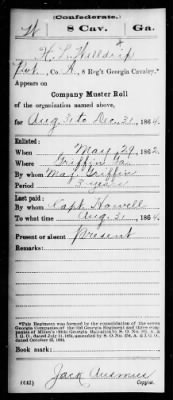 (Confederate.)
W 8 Cav. Ga.
Pvt., Co. A, 8 Reg't Georgia Cavalry.*
Appears on
Company Muster Roll
of the organization named above,
for Aug. 31 to Dec. 31, 1864.
Enlisted:
When May 29, 1862
Where Griffin Ga.
By whom Maj Griffin
Period 3 years
Last paid:
By whom Capt Howell
To what time Aug 31, 1864.
Present or absent Present
Remarks:
*This Regiment was formed by the consolidation of the seven
Georgia Companies of the
Book mark:
(642) Jack Ausmus
Copyist.